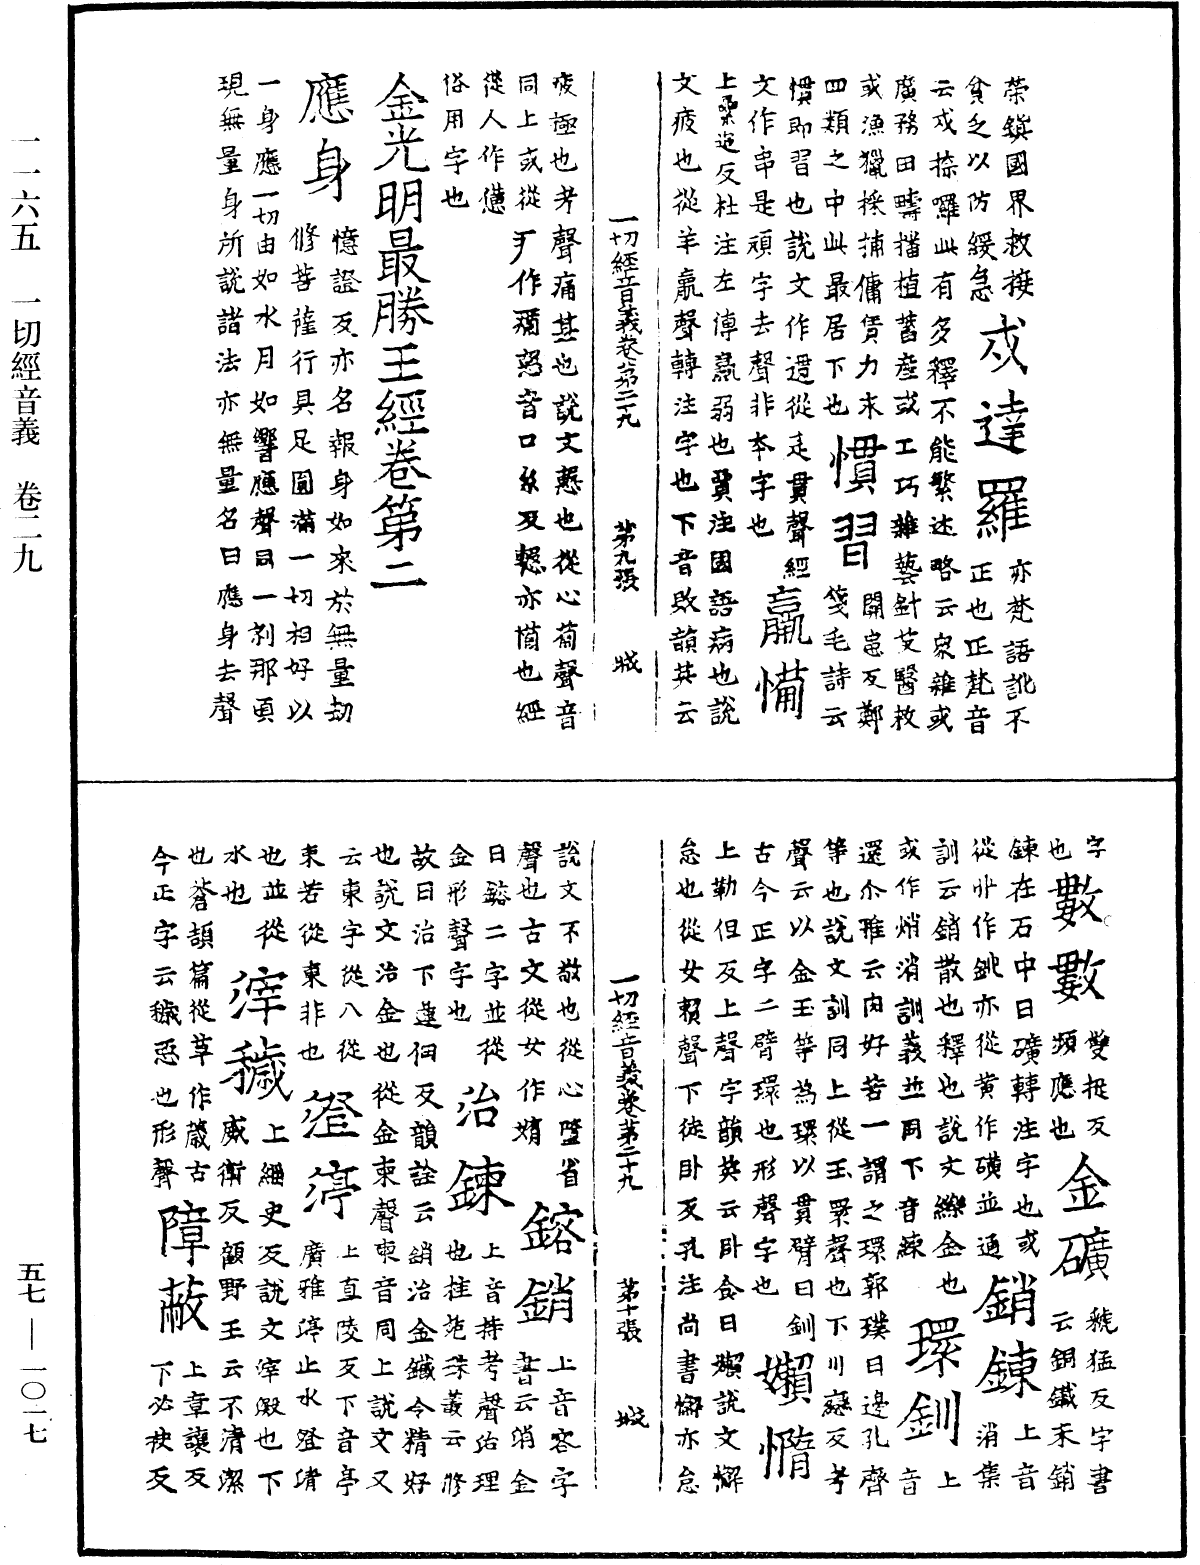 榮鎮國界救接
貧乏以防緩急戍達羅亦梵語訛不正也正梵音
云戍捺囉此有多釋不能繁述略云衆雜或
廣務田疇播植蓄產或工巧雜藝針艾醫救
或漁獵採捕傭賃力末
四類之中此最居下也慣習開患反鄭箋毛詩云
慣即習也說文作遦從辵貫聲經
文作串是頑字去聲非本字也羸憊
上累追反杜注左傳羸弱也賈注國語病也說
文疲也從羊𣎆聲轉注字也下音敗韻英云
一切經音義卷第二十九 第九張 城
疲極也考聲痛甚也說文憊也從心𤰈聲音
同上或從疒作㾱惣音口糸反憊亦㥶也經
從人作㒎
俗用字也
金光明最勝王經卷第二
應身憶證反亦名報身如來於無量劫
修菩薩行具足圓滿一切相好以
一身應一切由如水月如響應聲同一剎那頃
現無量身所說諸法亦無量名曰應身去聲
字
也數數雙捉反頻應也金礦虢猛反字書云銅鐵禾銷
鍊在石中曰礦轉注字也或
從卝作鉳亦從黃作磺並通銷鍊上音消集
訓云銷散也釋也說文鑠金也
或作焇消訓義並同下音練環釧上音
還尒雅云肉好若一謂之環郭璞曰邊孔齊
等也說文訓同上從玉睘聲也下川戀反考
聲云以金玉等為環以貫臂曰釧
古今正字二臂環也形聲字也嬾惰
上勒但反上聲字韻英云卧食曰嬾說文懈
怠也從女賴聲下徒卧反孔注尚書懈亦怠
一切經音義卷第二十九 第十張 城
說文不敬也從心墮省
聲也古文從女作媠鎔銷上音容字書云消金
曰鎔二字並從
金形聲字也冶鍊上音持考聲冶理也桂苑珠叢云修
故曰冶下蓮佃反韻詮云銷冶金鐵令精好
也說文冶金也從金柬聲柬音同上說文又
云柬字從八從
束若從東非也澄渟上直陵反下音亭廣雅渟止水澄清
也並從
水也滓穢上緇史反說文滓澱也下威衛反顧野王云不清潔
也蒼頡篇從草作薉古
今正字云穢惡也形聲障蔽上章讓反下必袂反
一一六五 一切經音義 卷二九
五七—一〇二七